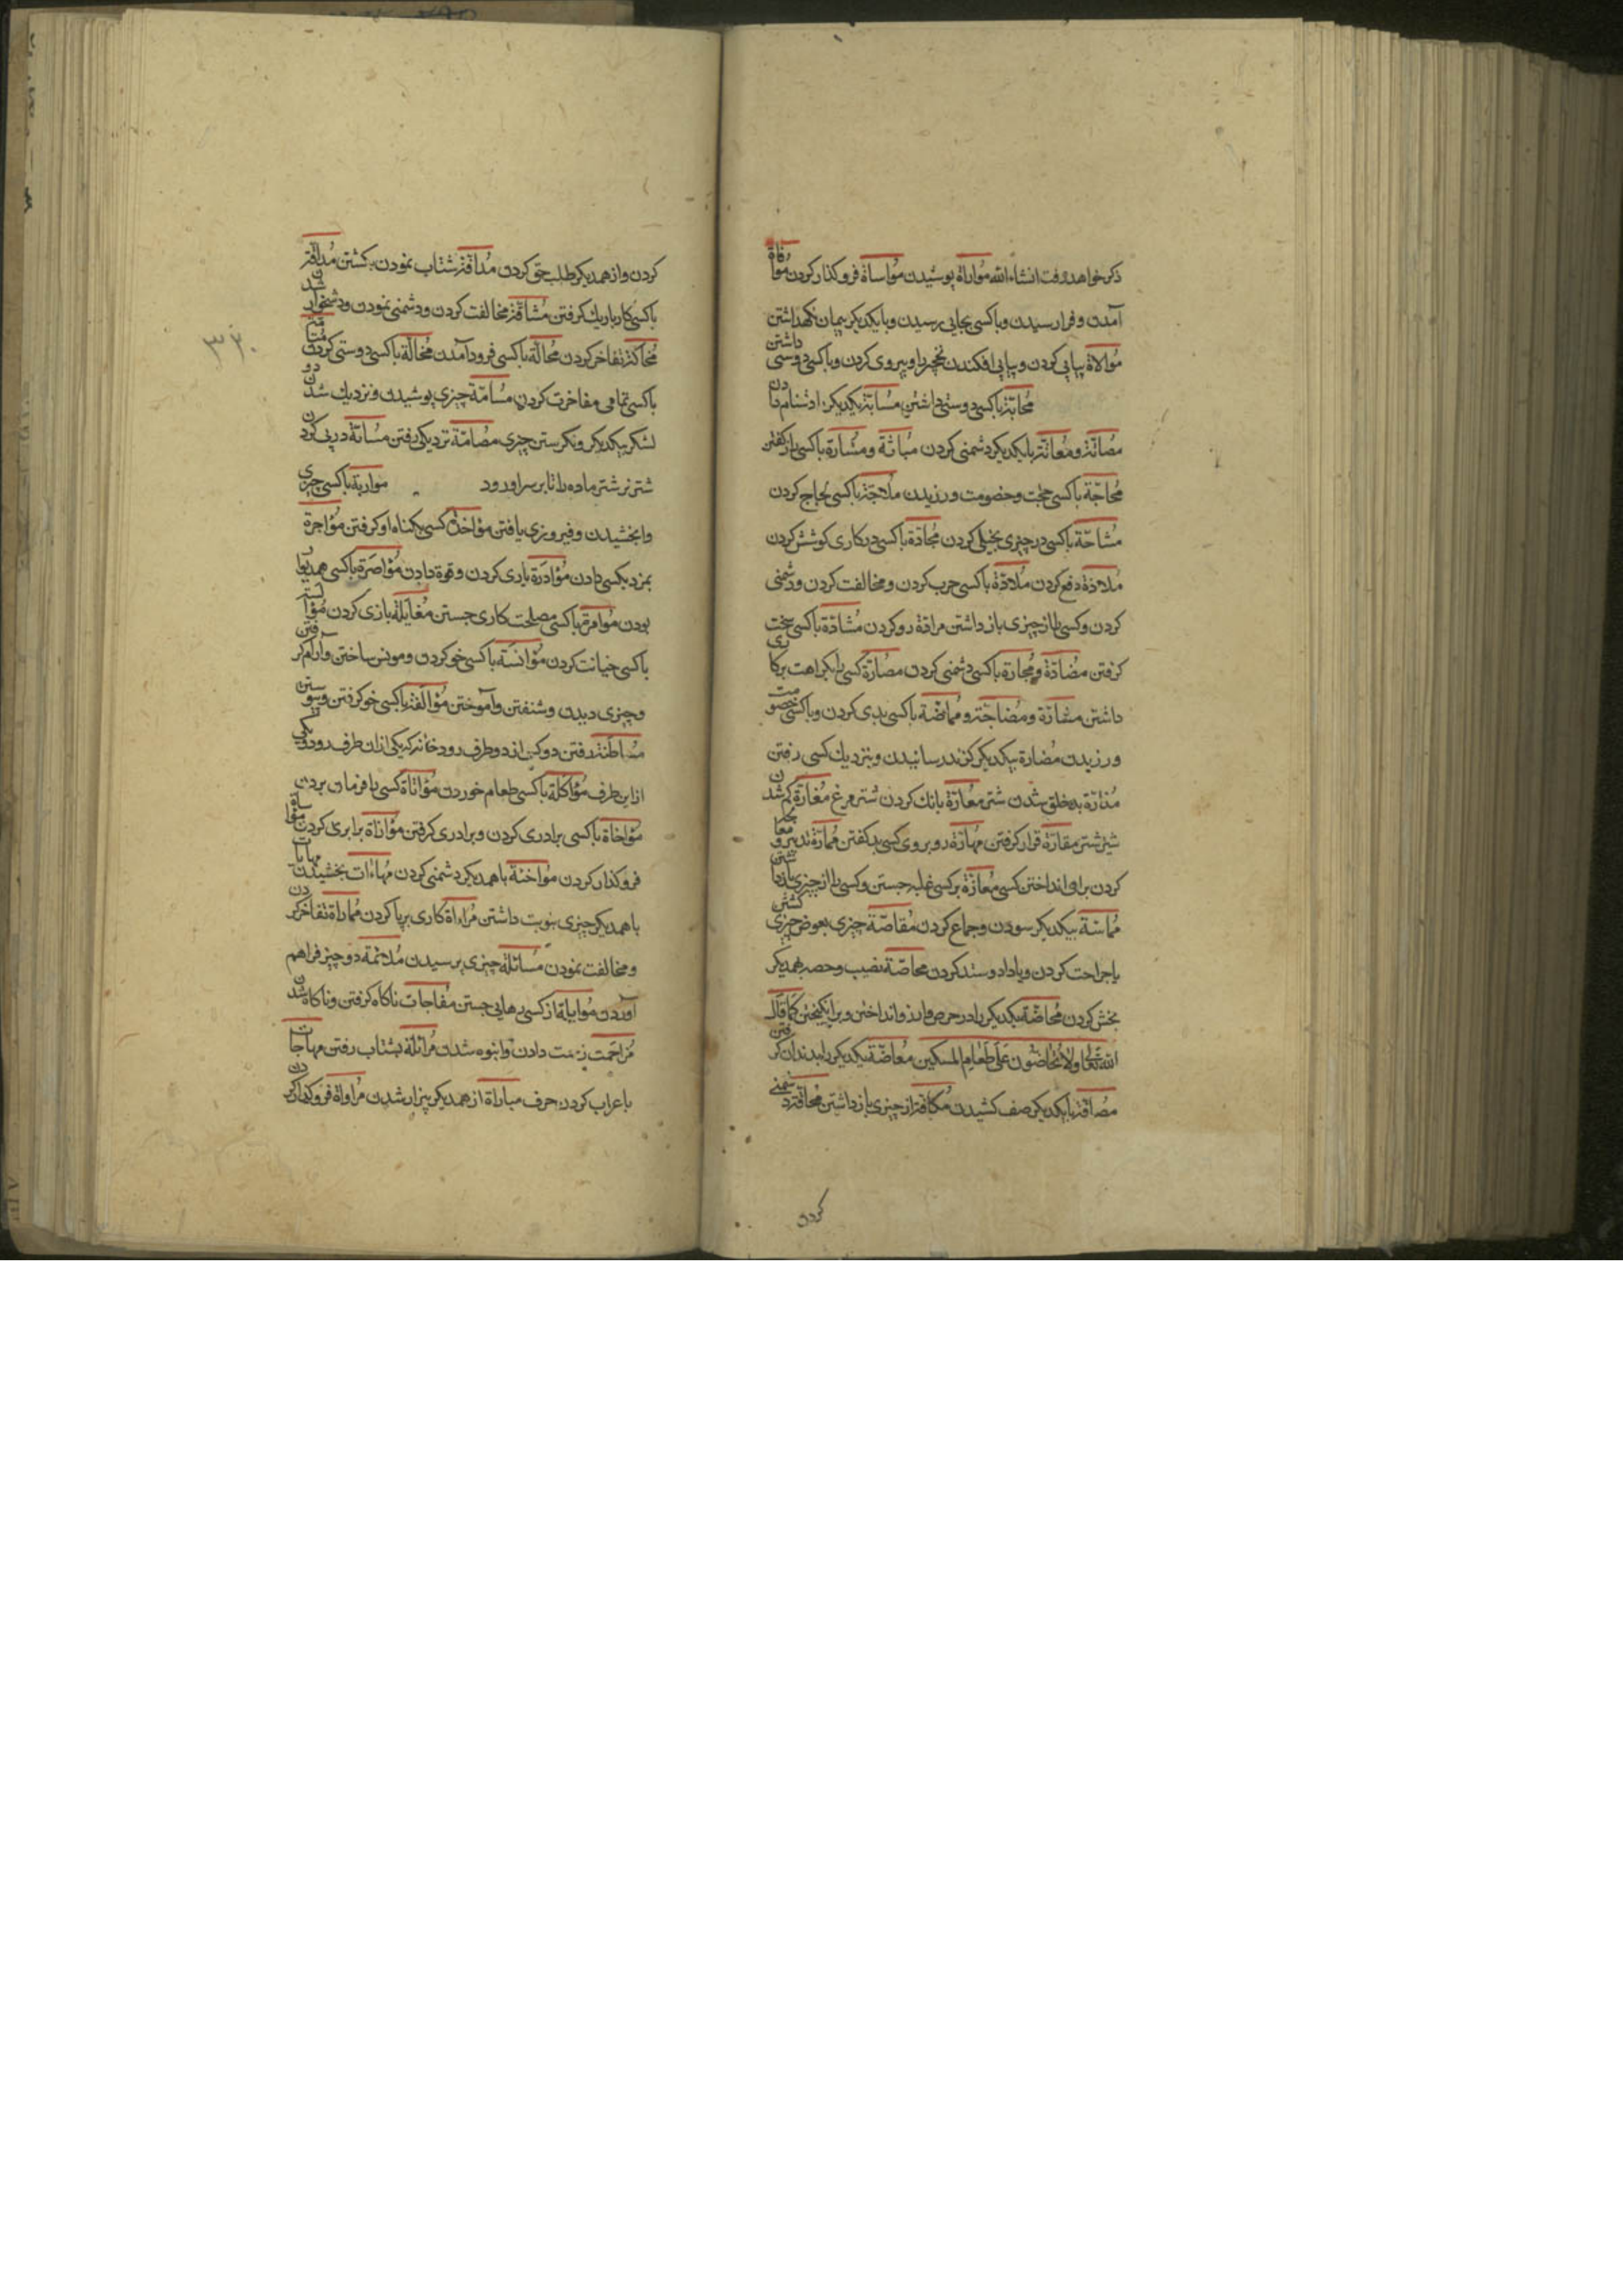 ذکر خواهد رفت انشاء الله مُواراة پوشیدن مُواساة فرو کذار کردن مُوافاة
آمدن و فرا رسیدن و با کسی بجایی رسیدن و با یکدیکر پیمان نکهداشتن
مُوالاة پیاپی کردن و پیاپی افکندن نخچیر را و پیروی کردن و با کسی دوستی داشتن
مُحابّة با کسی دوستی داشتن مُسابّة یکدیکر را دشنام دادن
مُصاتّة و مُعاتّة با یکدیکر دشمنی کردن مباثّة و مُشارّة با کسی راز کفتن
مُحاجّة با کسی حجّت و خصومت ورزیدن مُلاجّة با کسی لجاج کردن
مُشاحّة با کسی در چیزی بخیلی کردن مُجادّة با کسی در کاری کوشش کردن
مُلادّة دفع کردن مُلادّة با کسی حرب کردن و مخالفت کردن و دشمنی
کردن و کسی را از چیزی باز داشتن مرادّة رو کردن مُشادّة با کسی سخت
کرفتن مُضادّة و مُجارة با کسی دشمنی کردن مُصارّة کسی را بکراهت بر کاری
داشتن مشارّة و مُضاجّة و مُماضّة با کسی بدی کردن و با کسی خصومت
ورزیدن مُضارة بیکدیکر کزند رسانیدن و بنزدیک کسی رفتن
بدخلق شدن شتر معارّة بانک کردن شتر مرغ مُغارّة کم شدن
شیر شتر مقارّة قرار کرفتن مُهارّة رو بروی کسی بد کفتن مُمارّة تدبیر و مکر
کردن برای انداختن کسی مُعازّة بر کسی غلبه جستن و کسی را از چیزی باز داشتن
مُماسّة بیکدیکر سودن و جماع کردن مُقاصّة چیزی بعوض چیزی
یا جراحت کردن و یا داد و ستد کردن محاصّة نصیب و حصه بهمدیکر
بخش کردن مُحاضّة یکدیکر را در حرص و آرزو انداختن و بر انکیختن کما قال
الله تعالی ولا تُحاضّون عَلی طَعام المسکین مُعاضّة یکدیکر را بدندان کرفتن
مُصافّة با یکدیکر صف کشیدن مُکافّة از چیزی باز داشتن مُحاقّة دشمنی
کردن
کردن و از همدیکر طلب حق کردن مُدافّة شتاب نمودن بکشتن مُداقّة
با کسی کار باریک کرفتن مُشاقّة مخالفت کردن و دشمنی نمودن و دشخوار شدن
تفاخر کردن مُحالّة با کسی فرود آمدن مُخالّة با کسی دوستی کردن
با کسی تمامی مفاخرت کردن مُسامّة چیزی پوشیدن و نزدیک شدن دو
لشکر بیکدیکر و نکرستن چیزی مُصامّة نزدیکی رفتن مُسانّة در پی کردن
شتر نر شتر ماده را تا بر سر او رود مواربة با کسی چیزی
وا بخشیدن و فیروزی یافتن مؤاخذة کسی بکناه او کرفتن مُؤاجرة
بمزد بکسی دادن مُؤازرة یاری کردن و قوة دادن مُؤاصرة با کسی همدیوار
بودن مُوامرة با کسی مصلحت کاری جستن بازی کردن
با کسی خیانت کردن مُؤانسة با کسی خو کردن و مونس ساختن و آرام کرفتن
و چیزی دیدن و شنفتن و آموختن مُؤالفة با کسی خو کرفتن و پیوستن
رفتن دو کس از دو طرف رودخانه که یکی از ان طرف رود و یکی
از این طرف مُؤاکلة با کسی طعام خوردن مُؤاتاة کسی را فرمان بردن
مؤاخاة با کسی برادری کردن و برادری کرفتن مؤازاة برابری کردن مؤاساة
فرو کذار کردن مواحنة با همدیکر دشمنی کردن بخشیدن
با همدیکر چیزی بنوبت داشتن مُراءاة کاری بریا کردن مُماراة تفاخر کردن
و مخالفت نمودن مُسائلة چیزی پرسیدن مُلائمة دو چیز فراهم
آوردن مُوایلة از کسی رهایی جستن مُفاجات ناکاه کرفتن و ناکاه شدن
مُزاحَمت زحمت دادن و انبوه شدن بشتاب رفتن
با عراب کردن حرف مباراة از همدیکر بیزار شدن
۳۳۰